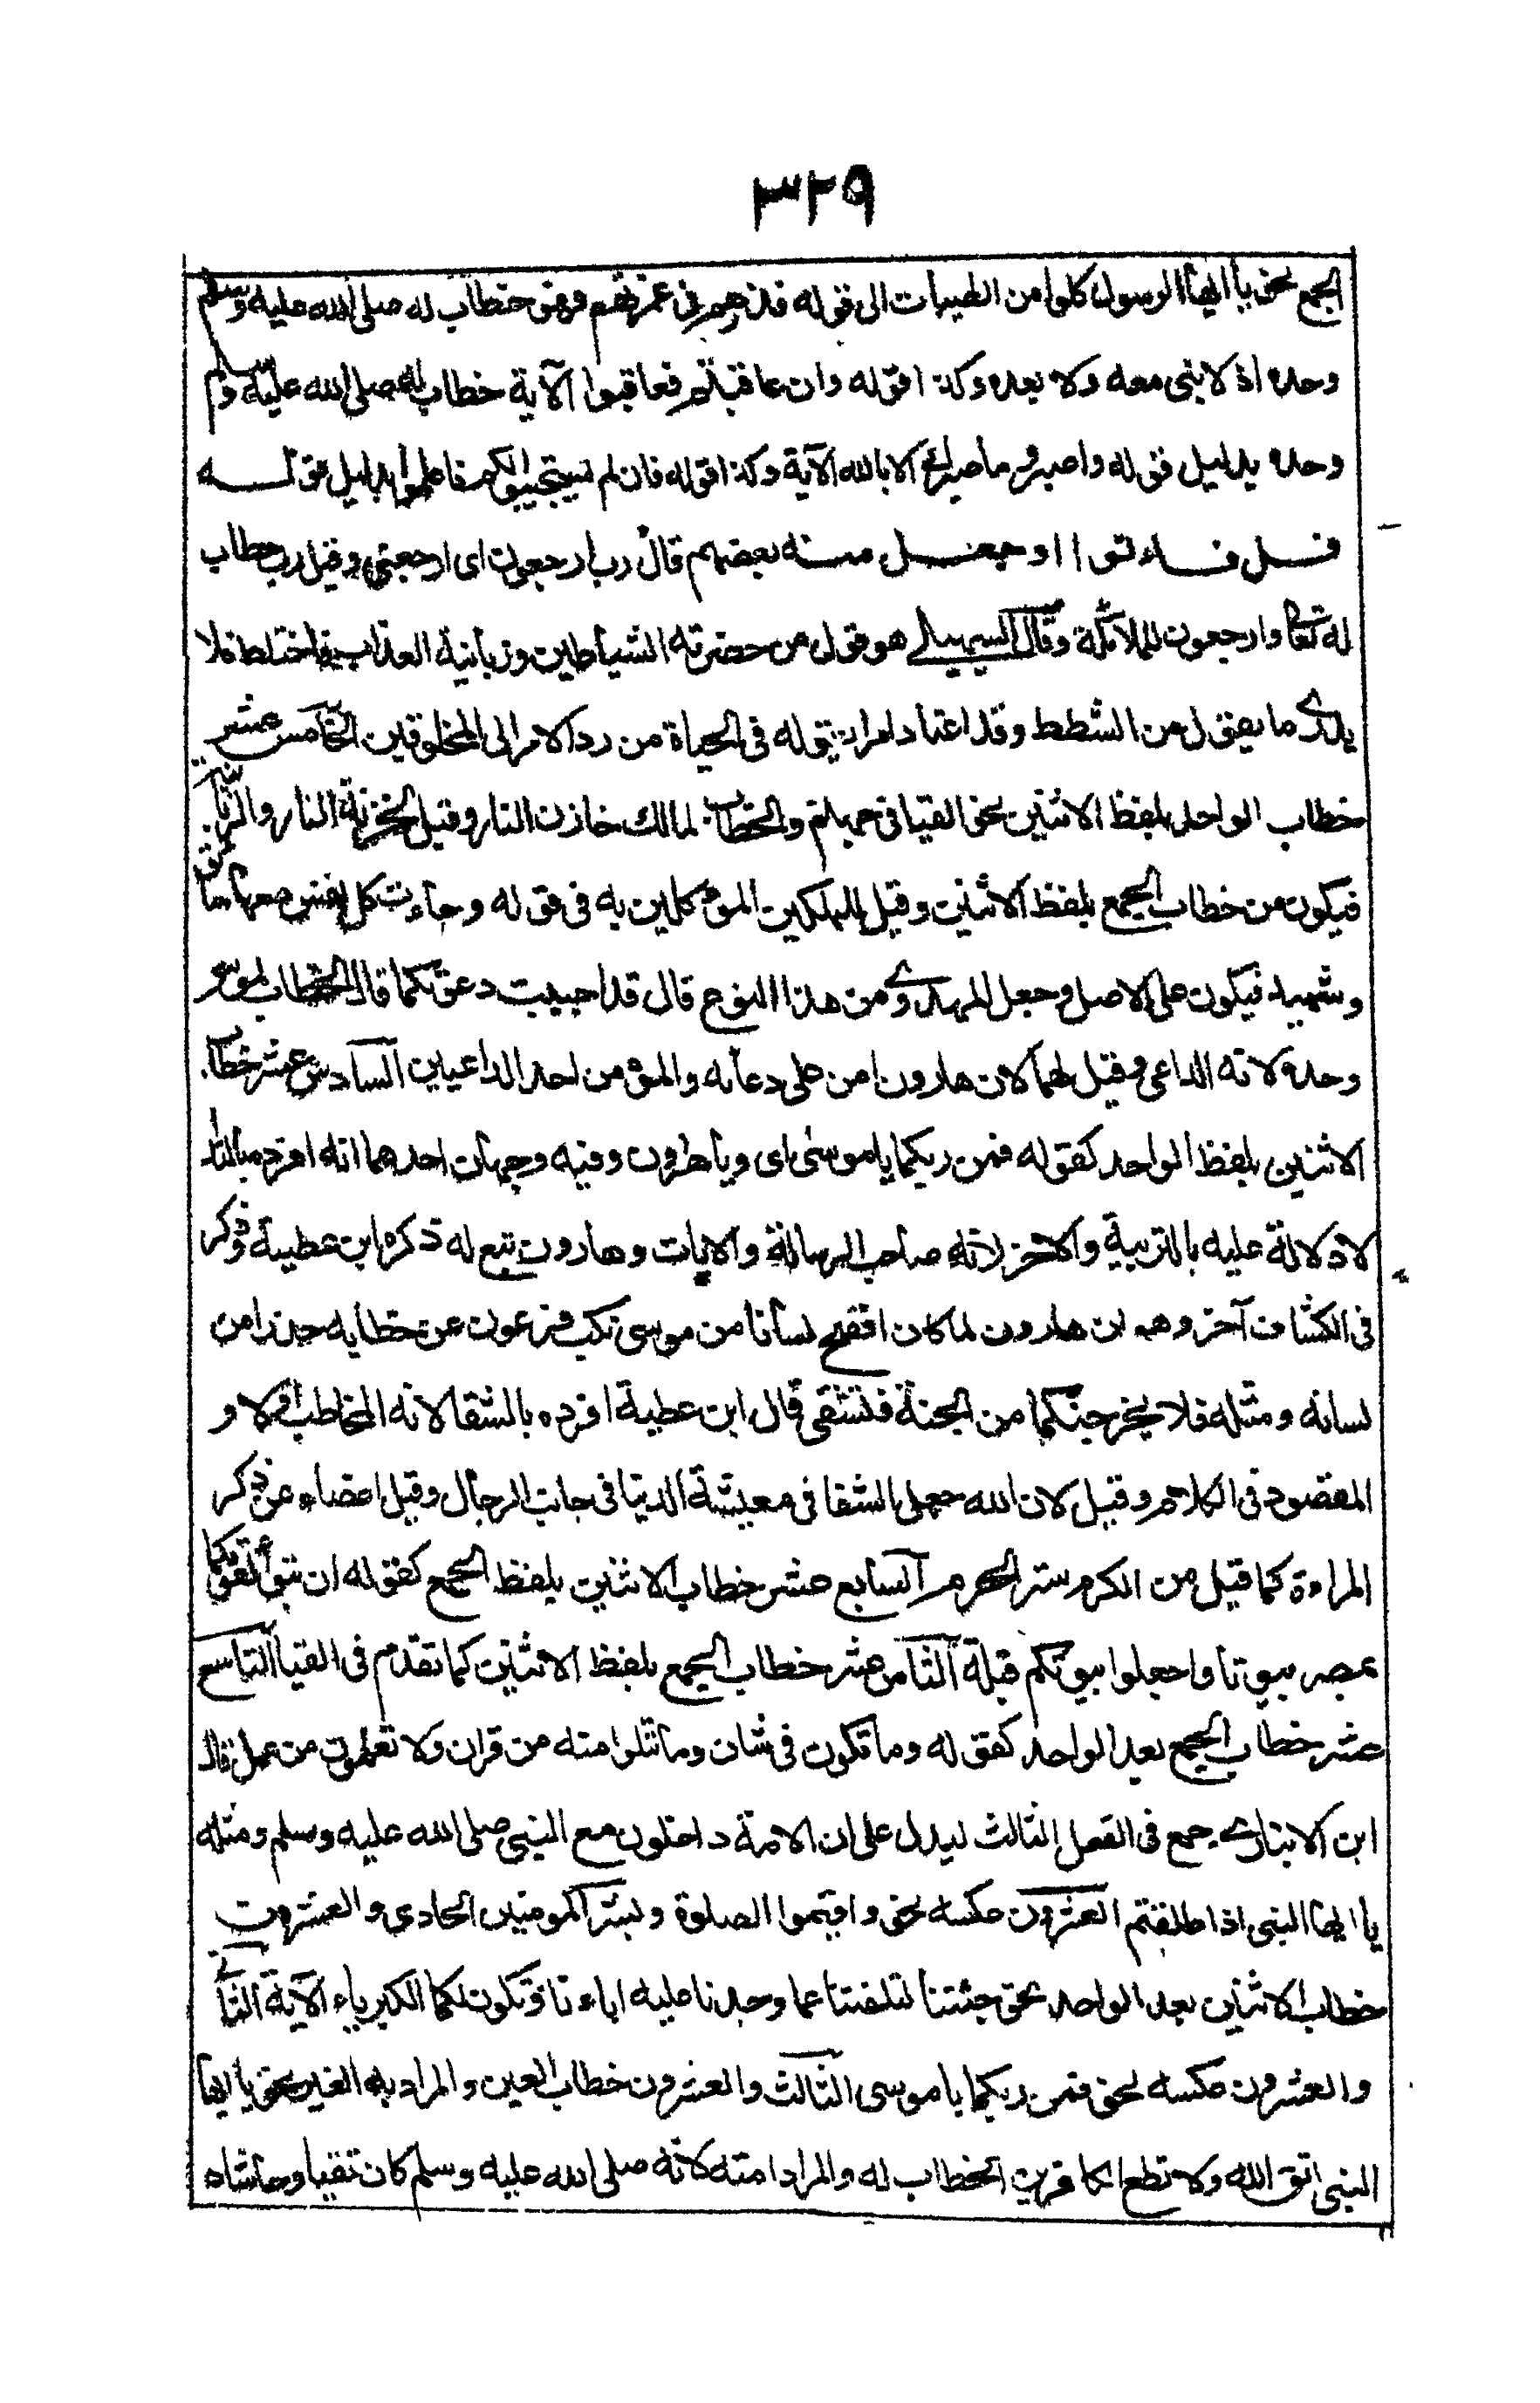 ٣٢٩
الجمع نحو يا ايها الرسول كلوا من الطيبات الى قوله فذرهم في غمرتهم فهو خطاب له صلى الله عليه وسلم
وحده اذ لا نبي معه ولا بعده وكذا قوله وان عاقبتم فعاقبوا الآية خطاب له صلى الله عليه وسلم
وحده بدليل قوله واصبر وما صبرك الا بالله الآية وكذا قوله فان لم يستجيبوا لكم فاعلموا بدليل قوله
قل فاءتوا وجعل منه بعضهم قال رب ارجعون اى ارجعنى وقيل رب خطاب
له تعالى وارجعون للملائكة وقال السهيلي هو قول من حضرته الشياطين وزبانية العذاب فاختلط فلا
يدرى ما يقول من الشطط وقد اعتاد امرا يقوله فى الحياة من رد الامر الى المخلوقين الخامس عشر
خطاب الواحد بلفظ الاثنين نحو القيا فى جهنم والخطاب لمالك خازن النار وقيل لخزنة النار والزبانية
فيكون من خطاب الجمع بلفظ الاثنين وقيل للملكين الموكلين به فى قوله وجاءت كل نفس معها سائق
وشهيد فيكون على الاصل وجعل المهدوى من هذا النوع قال قد اجيبت دعوتكما قال الخطاب لموسى
وحده لانه الداعى وقيل لهما لان هارون امن على دعائه والمؤمن احد الداعيين السادس عشر خطاب
الاثنين بلفظ الواحد كقوله فمن ربكما يا موسى اى ويا هارون وفيه وجهان احدهما انه افرده بالنداء
لادلالة عليه بالتربية والاخر لانه صاحب الرسالة والايات وهارون تبع له ذكره ابن عطية وذكر
فى الكشاف آخر وهو ان هارون لما كان افصح لسانا من موسى نكب فرعون عن خطابه حذرا من
لسانه ومثله فلا يخرجنكما من الجنة فتشقى قال ابن عطية افرده بالشقا لانه المخاطب اولا و
المقصود فى الكلام وقيل لان الله جعل الشقا فى معيشة الدنيا فى جانب الرجال وقيل اغضاء عن ذكر
المراءة كما قيل من الكرم ستر الحرم السابع عشر خطاب الاثنين بلفظ الجمع كقوله ان تبوأ لقومكما
بمصر بيوتا واجعلوا بيوتكم قبلة الثامن عشر خطاب الجمع بلفظ الاثنين كما تقدم فى القيا التاسع
عشر خطاب الجمع بعد الواحد كقوله وما تكون فى شان وما تتلوا منه من قران ولا تعملون من عمل قال
ابن الانبارى جمع فى الفعل الثالث ليدل على ان الامة داخلون مع النبي صلى الله عليه وسلم ومثله
يا ايها النبى اذا طلقتم العشرون عكسه نحو واقيموا الصلوة وبشر المومنين الحادى والعشرون
خطاب الاثنين بعد الواحد نحو جئتنا لتلفتنا عما وجدنا عليه اباءنا وتكون لكما الكبرياء الآية الثانى
والعشرون عكسه نحو فمن ربكما يا موسى الثالث والعشرون خطاب العين والمراد به الغير نحو يا ايها
النبى اتق الله ولا تطع الكافرين الخطاب له والمراد امته لانه صلى الله عليه وسلم كان تقيا وحاشاه